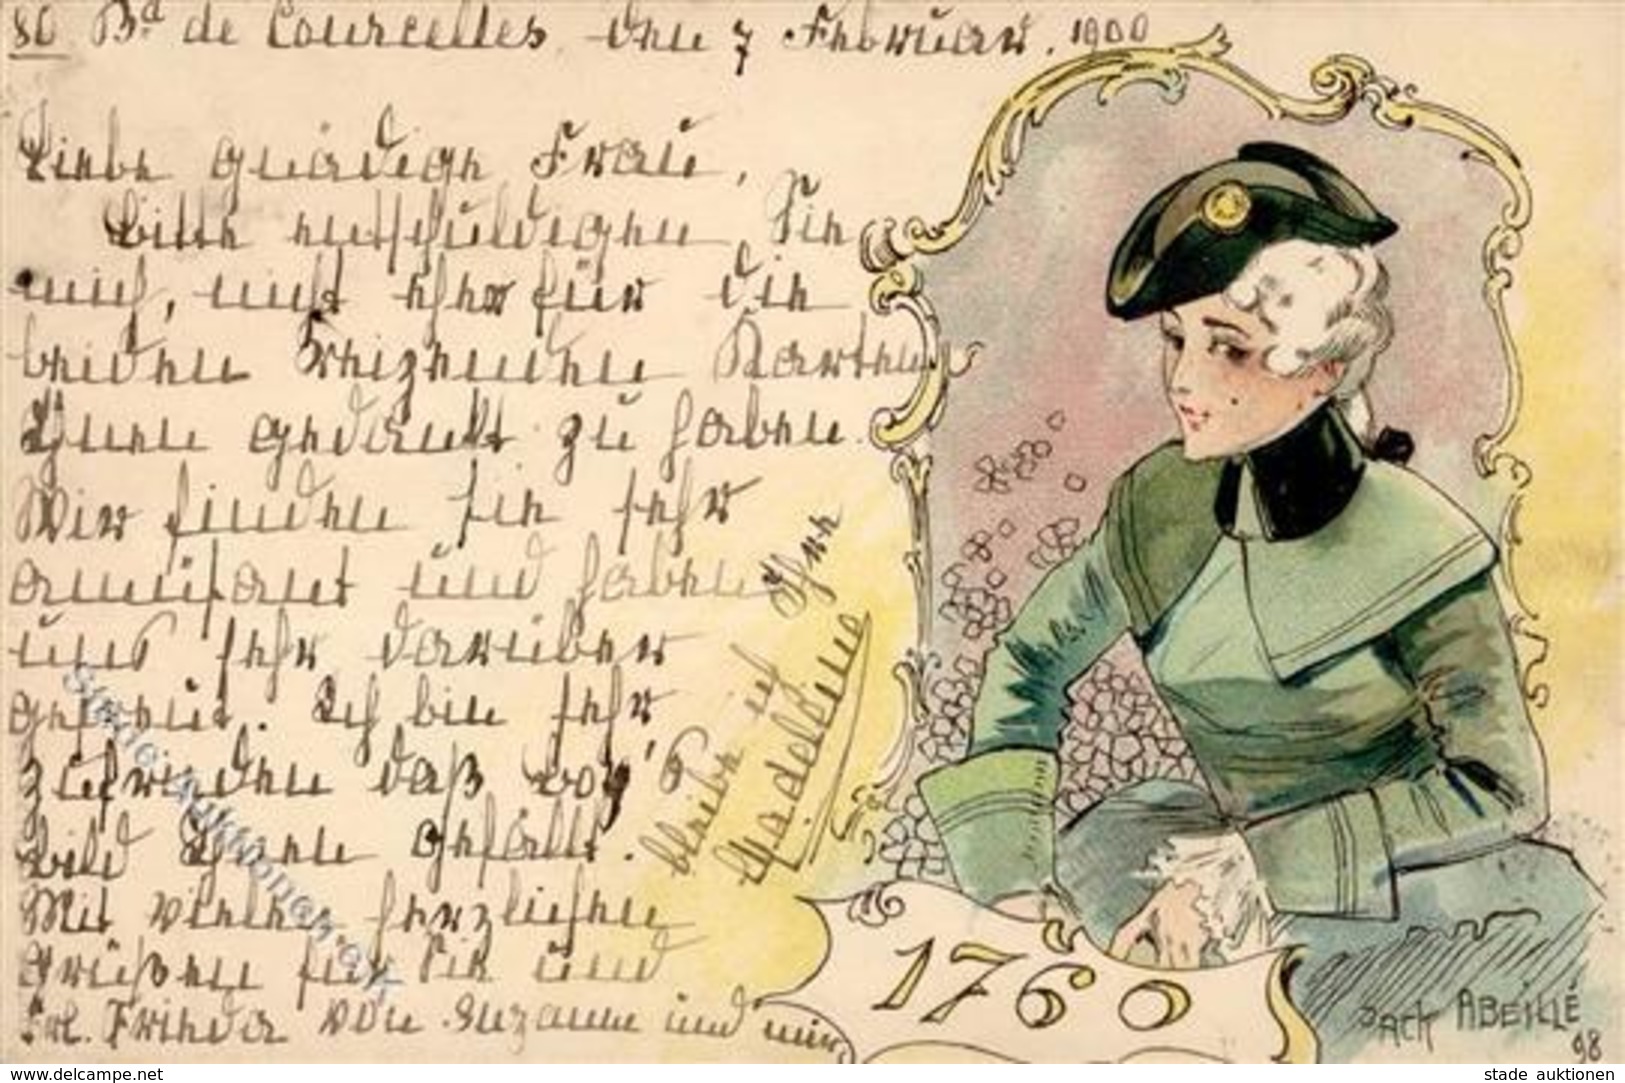 80 Bd de Courcelles den 7 Februar. 1900
Liebe gnädige Frau,
Bitte entschuldigen Sie
mich, nicht eher für die
beiden Reizenden Karten
Ihnen gedankt zu haben.
Wir finden sie sehr
amüsant und haben
uns sehr darüber
gefreut. Ich bin sehr
zufrieden daß Boy's
Bild Ihnen gefällt.
Mit vielen herzlichen
Grüßen für Sie und
Frl. Frieda von Suzanne und mir,
bleibe ich Ihre
Madeleine
1760
JACK ABEILLÉ
98
Stade Auktionen
www.delcampe.net
stade auktionen